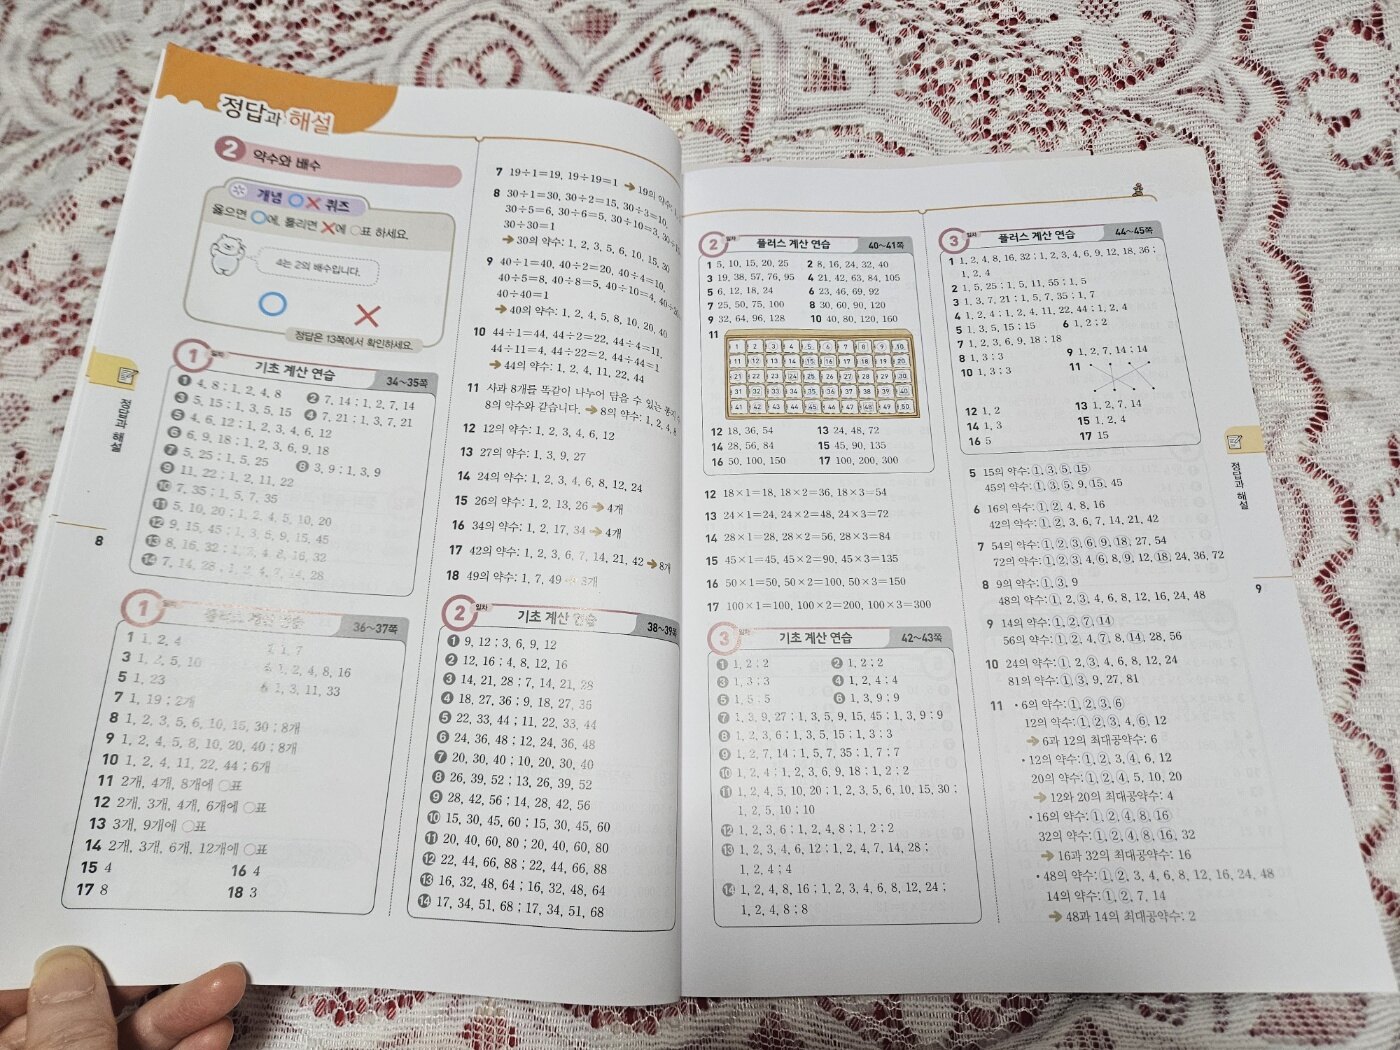 정답과 해설
2 약수와 배수
개념 ○× 퀴즈
옳으면 ○에, 틀리면 ×에 ○표 하세요.
4는 2의 배수입니다.
정답은 13쪽에서 확인하세요.
1 일차 기초 계산 연습 34~35쪽
❶ 4, 8 ; 1, 2, 4, 8 ❷ 7, 14 ; 1, 2, 7, 14
❸ 5, 15 ; 1, 3, 5, 15 ❹ 7, 21 ; 1, 3, 7, 21
❺ 4, 6, 12 ; 1, 2, 3, 4, 6, 12
❻ 6, 9, 18 ; 1, 2, 3, 6, 9, 18
❼ 5, 25 ; 1, 5, 25 ❽ 3, 9 ; 1, 3, 9
❾ 11, 22 ; 1, 2, 11, 22
❿ 7, 35 ; 1, 5, 7, 35
⓫ 5, 10, 20 ; 1, 2, 4, 5, 10, 20
⓬ 9, 15, 45 ; 1, 3, 5, 9, 15, 45
⓭ 8, 16, 32 ; 1, 2, 4, 8, 16, 32
⓮ 7, 14, 28 ; 1, 2, 4, 7, 14, 28
1 일차 플러스 계산 연습 36~37쪽
1 1, 2, 4 1, 7
3 1, 2, 5, 10 1, 2, 4, 8, 16
5 1, 23 6 1, 3, 11, 33
7 1, 19 ; 2개
8 1, 2, 3, 5, 6, 10, 15, 30 ; 8개
9 1, 2, 4, 5, 8, 10, 20, 40 ; 8개
10 1, 2, 4, 11, 22, 44 ; 6개
11 2개, 4개, 8개에 ○표
12 2개, 3개, 4개, 6개에 ○표
13 3개, 9개에 ○표
14 2개, 3개, 6개, 12개에 ○표
15 4 16 4
17 8 18 3
7 19÷1=19, 19÷19=1 ➔ 19의 약수:
8 30÷1=30, 30÷2=15, 30÷3=10,
30÷5=6, 30÷6=5, 30÷10=3,
30÷30=1
➔ 30의 약수: 1, 2, 3, 5, 6, 10, 15, 30
9 40÷1=40, 40÷2=20, 40÷4=10,
40÷5=8, 40÷8=5, 40÷10=4,
40÷40=1
➔ 40의 약수: 1, 2, 4, 5, 8, 10, 20, 40
10 44÷1=44, 44÷2=22, 44÷4=11,
44÷11=4, 44÷22=2, 44÷44=1
➔ 44의 약수: 1, 2, 4, 11, 22, 44
11 사과 8개를 똑같이 나누어 담을 수 있는
8의 약수와 같습니다. ➔ 8의 약수: 1, 2, 4, 8
12 12의 약수: 1, 2, 3, 4, 6, 12
13 27의 약수: 1, 3, 9, 27
14 24의 약수: 1, 2, 3, 4, 6, 8, 12, 24
15 26의 약수: 1, 2, 13, 26 ➔ 4개
16 34의 약수: 1, 2, 17, 34 ➔ 4개
17 42의 약수: 1, 2, 3, 6, 7, 14, 21, 42 ➔ 8개
18 49의 약수: 1, 7, 49 ➔ 3개
2 일차 기초 계산 연습 38~39쪽
❶ 9, 12 ; 3, 6, 9, 12
❷ 12, 16 ; 4, 8, 12, 16
❸ 14, 21, 28 ; 7, 14, 21, 28
❹ 18, 27, 36 ; 9, 18, 27, 36
❺ 22, 33, 44 ; 11, 22, 33, 44
❻ 24, 36, 48 ; 12, 24, 36, 48
❼ 20, 30, 40 ; 10, 20, 30, 40
❽ 26, 39, 52 ; 13, 26, 39, 52
❾ 28, 42, 56 ; 14, 28, 42, 56
❿ 15, 30, 45, 60 ; 15, 30, 45, 60
⓫ 20, 40, 60, 80 ; 20, 40, 60, 80
⓬ 22, 44, 66, 88 ; 22, 44, 66, 88
⓭ 16, 32, 48, 64 ; 16, 32, 48, 64
⓮ 17, 34, 51, 68 ; 17, 34, 51, 68
정답과 해설
8
2 일차 플러스 계산 연습 40~41쪽
1 5, 10, 15, 20, 25 2 8, 16, 24, 32, 40
3 19, 38, 57, 76, 95 4 21, 42, 63, 84, 105
5 6, 12, 18, 24 6 23, 46, 69, 92
7 25, 50, 75, 100 8 30, 60, 90, 120
9 32, 64, 96, 128 10 40, 80, 120, 160
11
1 2 3 4 5 6 7 8 9 10
11 12 13 14 15 16 17 18 19 20
21 22 23 24 25 26 27 28 29 30
31 32 33 34 35 36 37 38 39 40
41 42 43 44 45 46 47 48 49 50
12 18, 36, 54 13 24, 48, 72
14 28, 56, 84 15 45, 90, 135
16 50, 100, 150 17 100, 200, 300
12 18×1=18, 18×2=36, 18×3=54
13 24×1=24, 24×2=48, 24×3=72
14 28×1=28, 28×2=56, 28×3=84
15 45×1=45, 45×2=90, 45×3=135
16 50×1=50, 50×2=100, 50×3=150
17 100×1=100, 100×2=200, 100×3=300
3 일차 기초 계산 연습 42~43쪽
❶ 1, 2 ; 2 ❷ 1, 2 ; 2
❸ 1, 3 ; 3 ❹ 1, 2, 4 ; 4
❺ 1, 5 ; 5 ❻ 1, 3, 9 ; 9
❼ 1, 3, 9, 27 ; 1, 3, 5, 9, 15, 45 ; 1, 3, 9 ; 9
❽ 1, 2, 3, 6 ; 1, 3, 5, 15 ; 1, 3 ; 3
❾ 1, 2, 7, 14 ; 1, 5, 7, 35 ; 1, 7 ; 7
❿ 1, 2, 4 ; 1, 2, 3, 6, 9, 18 ; 1, 2 ; 2
⓫ 1, 2, 4, 5, 10, 20 ; 1, 2, 3, 5, 6, 10, 15, 30 ;
1, 2, 5, 10 ; 10
⓬ 1, 2, 3, 6 ; 1, 2, 4, 8 ; 1, 2 ; 2
⓭ 1, 2, 3, 4, 6, 12 ; 1, 2, 4, 7, 14, 28 ;
1, 2, 4 ; 4
⓮ 1, 2, 4, 8, 16 ; 1, 2, 3, 4, 6, 8, 12, 24 ;
1, 2, 4, 8 ; 8
3 일차 플러스 계산 연습 44~45쪽
1 1, 2, 4, 8, 16, 32 ; 1, 2, 3, 4, 6, 9, 12, 18, 36 ;
1, 2, 4
2 1, 5, 25 ; 1, 5, 11, 55 ; 1, 5
3 1, 3, 7, 21 ; 1, 5, 7, 35 ; 1, 7
4 1, 2, 4 ; 1, 2, 4, 11, 22, 44 ; 1, 2, 4
5 1, 3, 5, 15 ; 15 6 1, 2 ; 2
7 1, 2, 3, 6, 9, 18 ; 18
8 1, 3 ; 3 9 1, 2, 7, 14 ; 14
10 1, 3 ; 3 11
12 1, 2 13 1, 2, 7, 14
14 1, 3 15 1, 2, 4
16 5 17 15
5 15의 약수: ①, ③, ⑤, ⑮
45의 약수: ①, ③, ⑤, 9, ⑮, 45
6 16의 약수: ①, ②, 4, 8, 16
42의 약수: ①, ②, 3, 6, 7, 14, 21, 42
7 54의 약수: ①, ②, ③, ⑥, ⑨, ⑱, 27, 54
72의 약수: ①, ②, ③, 4, ⑥, 8, ⑨, 12, ⑱, 24, 36, 72
8 9의 약수: ①, ③, 9
48의 약수: ①, 2, ③, 4, 6, 8, 12, 16, 24, 48
9 14의 약수: ①, ②, ⑦, ⑭
56의 약수: ①, ②, 4, ⑦, 8, ⑭, 28, 56
10 24의 약수: ①, 2, ③, 4, 6, 8, 12, 24
81의 약수: ①, ③, 9, 27, 81
11 • 6의 약수: ①, ②, ③, ⑥
12의 약수: ①, ②, ③, 4, ⑥, 12
➔ 6과 12의 최대공약수: 6
• 12의 약수: ①, ②, 3, ④, 6, 12
20의 약수: ①, ②, ④, 5, 10, 20
➔ 12와 20의 최대공약수: 4
• 16의 약수: ①, ②, ④, ⑧, ⑯
32의 약수: ①, ②, ④, ⑧, ⑯, 32
➔ 16과 32의 최대공약수: 16
• 48의 약수: ①, ②, 3, 4, 6, 8, 12, 16, 24, 48
14의 약수: ①, ②, 7, 14
➔ 48과 14의 최대공약수: 2
정답과 해설
9